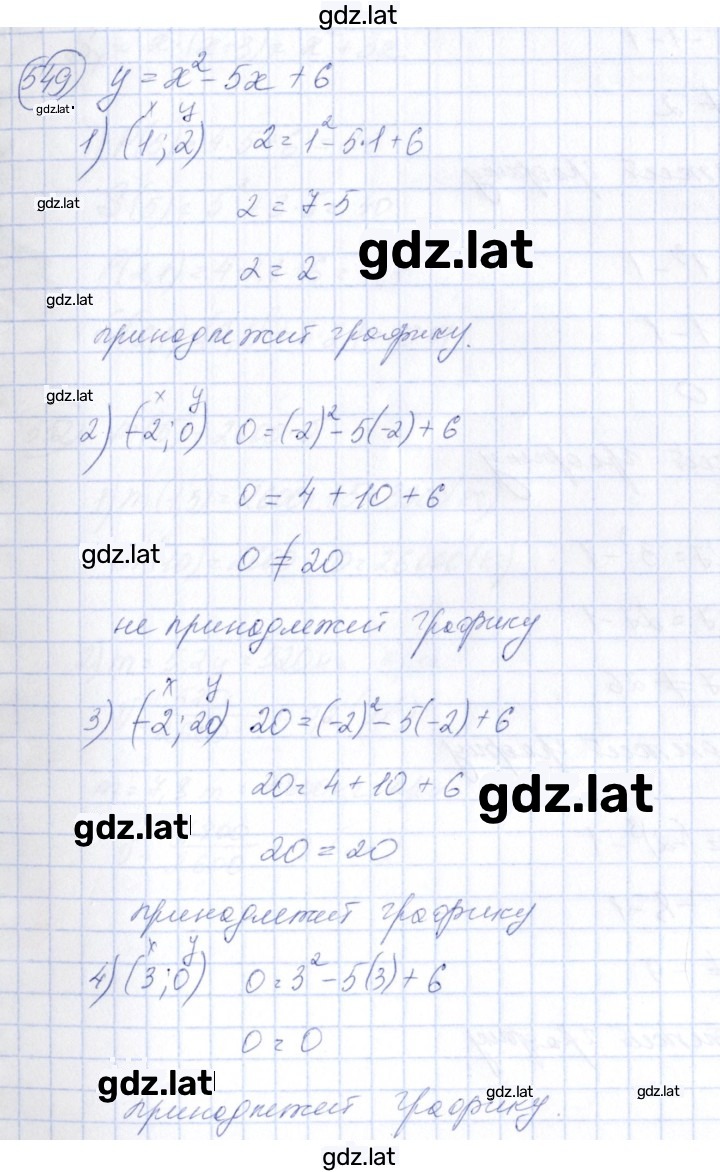 gdz.lat
549) y = x² - 5x + 6
gdz.lat
x y
1) (1; 2) 2 = 1² - 5·1 + 6
gdz.lat
2 = 7 - 5
gdz.lat
2 = 2
gdz.lat
принадлежит графику.
gdz.lat
x y
2) (-2; 0) 0 = (-2)² - 5(-2) + 6
0 = 4 + 10 + 6
gdz.lat
0 ≠ 20
не принадлежит графику
x y
3) (-2; 20) 20 = (-2)² - 5(-2) + 6
20 = 4 + 10 + 6
gdz.lat
gdz.lat
20 = 20
принадлежит графику
x y
4) (3; 0) 0 = 3² - 5(3) + 6
0 = 0
gdz.lat
gdz.lat
gdz.lat
принадлежит графику.
gdz.lat